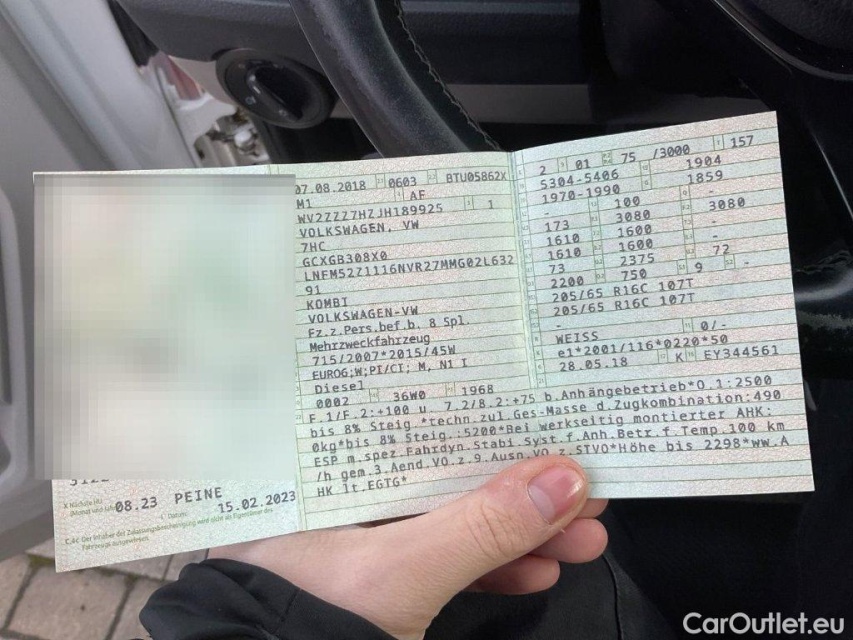 07.08.2018 0603 BTU05862X
M1 AF
WV2ZZZ7HZJH189925 1
VOLKSWAGEN, VW
7HC
GCXGB308X0
LNFM52Z1116NVR27MMG02L632
91
KOMBI
VOLKSWAGEN-VW
Fz.z.Pers.bef.b. 8 Spl.
Mehrzweckfahrzeug
715/2007*2015/45W
EURO6;W;PI/CI; M, N1 I
Diesel
0002 36W0 1968
2 01 75 /3000 157
5304-5406 1904
1970-1990 1859
- 100 -
173 3080 3080
1610 1600 -
1610 1600 -
73 2375 72
2200 750 9 -
205/65 R16C 107T
205/65 R16C 107T
-
WEISS 0/-
e1*2001/116*0220*50
28.05.18 K EY344561
F.1/F.2:+100 u. 7.2/8.2:+75 b.Anhängebetrieb*O.1:2500
bis 8% Steig.*techn.zul.Ges-Masse d.Zugkombination:490
0kg*bis 8% Steig.:5200*Bei werkseitig montierter AHK:
ESP m.spez.Fahrdyn.Stabi.Syst.f.Anh.Betr.f.Temp.100 km
/h gem.3.Aend.VO.z.9.Ausn.VO.z.STVO*Höhe bis 2298*ww.A
HK lt.EGTG*
X Nächste HU
08.23 PEINE
15.02.2023
C.4c Der Inhaber der Zulassungsbescheinigung wird nicht als Eigentümer des
Fahrzeugs ausgewiesen.
CarOutlet.eu